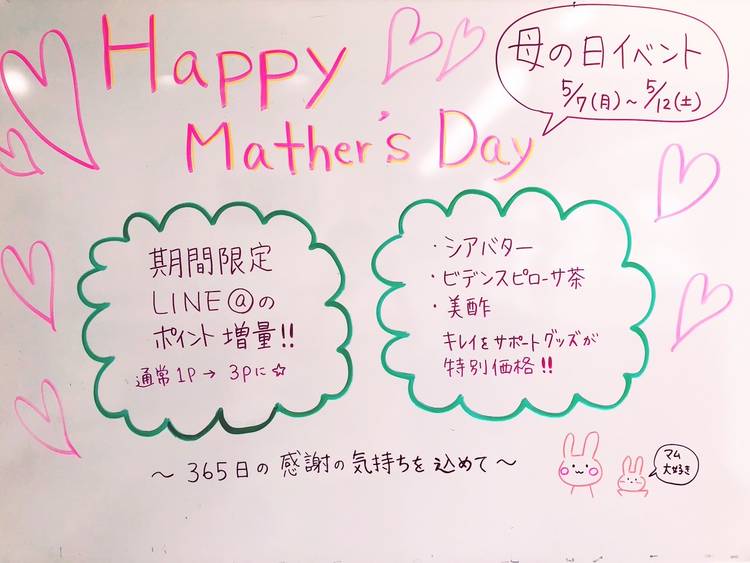 Happy
Mather's Day
母の日イベント
5/7(月)～5/12(土)
期間限定
LINE@の
ポイント増量!!
通常1P→3Pに☆
・シアバター
・ビデンスピローサ茶
・美酢
キレイをサポートグッズが
特別価格!!
～365日の感謝の気持ちを込めて～
マム
大好き